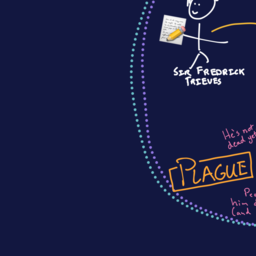 SIR FREDRICK
TRIEVES
He's not
dead ye
PLAGUE
him
(and